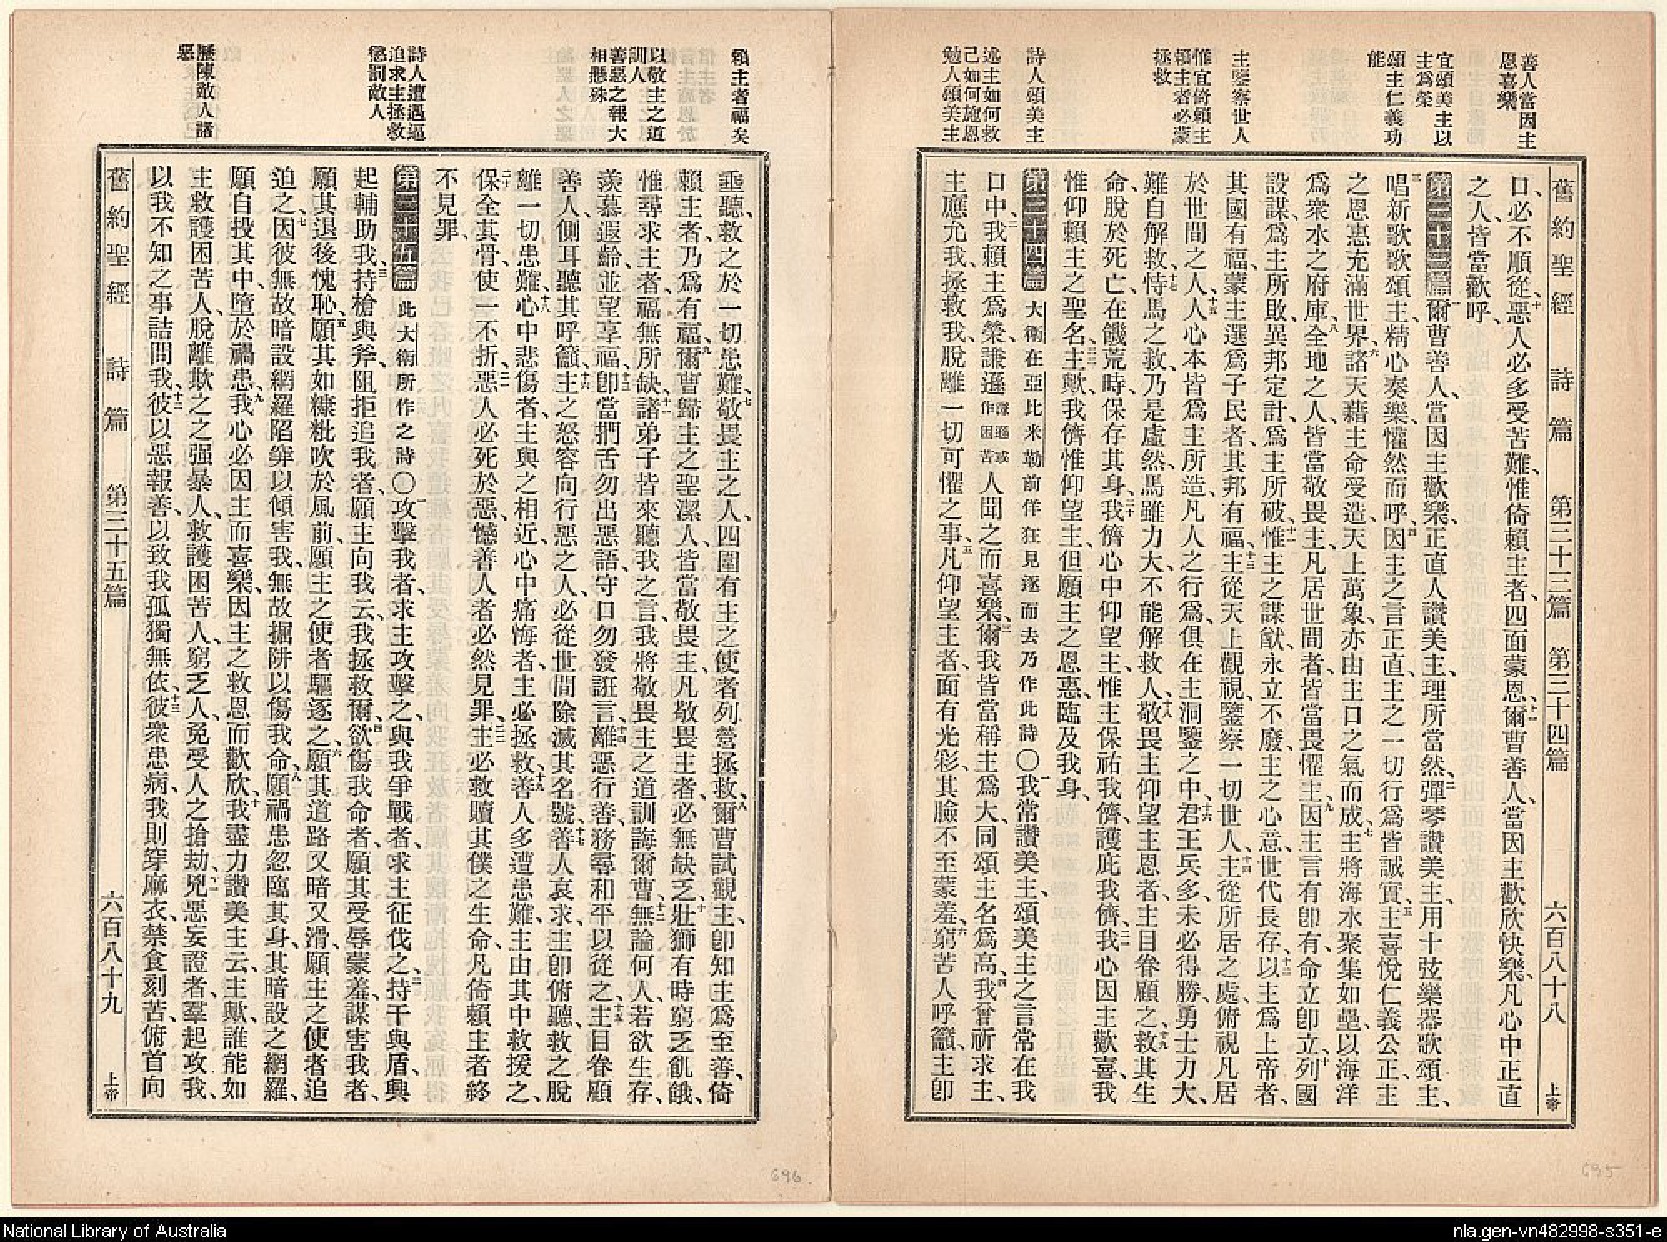 善人當因主
恩喜樂
宜頌美主以
主爲榮
頌主仁義功
能
主鑒察世人
惟宜倚賴主
賴主者必蒙
拯救
詩人頌美主
述主如何救
己如何施恩
勉人頌美主
舊約聖經 詩篇 第三十三篇 第三十四篇 六百八十八 上帝
口、必不順從、十惡人必多受苦難、惟倚賴主者、四面蒙恩、十一爾曹善人、當因主歡欣快樂、凡心中正直
之人、皆當歡呼、
第三十三篇 一爾曹善人、當因主歡樂、正直人讚美主、理所當然、二彈琴讚美主、用十弦樂器歌頌主、
三唱新歌歌頌主、精心奏樂、懽然而呼、四因主之言正直、主之一切行爲皆誠實、五主喜悅仁義公正、主
之恩惠充滿世界、六諸天藉主命受造、天上萬象、亦由主口之氣而成、七主將海水聚集如壘、以海洋
爲衆水之府庫、八全地之人、皆當敬畏主、凡居世間者、皆當畏懼主、九因主言有卽有、命立卽立、十列國
設謀、爲主所敗、異邦定計、爲主所破、十一惟主之謀猷、永立不廢、主之心意、世代長存、十二以主爲上帝者、
其國有福、蒙主選爲子民者、其邦有福、十三主從天上觀視、鑒察一切世人、十四主從所居之處、俯視凡居
於世間之人、十五人心本皆爲主所造、凡人之行爲、俱在主洞鑒之中、十六君王兵多、未必得勝、勇士力大、
難自解救、十七恃馬之救、乃是虛然、馬雖力大、不能解救人、十八敬畏主仰望主恩者、主目眷顧之、十九救其生
命、脫於死亡、在饑荒時、保存其身、二十我儕心中仰望主、惟主保祐我儕、護庇我儕、二一我心因主歡喜、我
惟仰賴主之聖名、二二主歟、我儕惟仰望主、但願主之恩惠、臨及我身、
第三十四篇 大衛在亞比米勒前佯狂見逐而去乃作此詩〇一我常讚美主、頌美主之言常在我
口中、二我賴主爲榮、謙遜人聞之而喜樂、三爾我皆當稱主爲大、同頌主名爲高、四我曾祈求主、
主應允我、拯救我、脫離一切可懼之事、五凡仰望主者、面有光彩、其臉不至蒙羞、六窮苦人呼籲、主卽
賴主者福矣
以敬主之道
訓人
善惡之報大
相懸殊
詩人遭遇逼
迫求主拯救
懲罰敵人
歷陳敵人諸
惡
垂聽、救之於一切患難、七敬畏主之人、四圍有主之使者列營拯救、八爾曹試觀主、卽知主爲至善、倚
賴主者、乃爲有福、九爾曹歸主之聖潔人、皆當敬畏主、凡敬畏主者、必無缺乏、十壯獅有時窮乏飢餓、
惟尋求主者、福無所缺、十一諸弟子皆來聽我之言、我將敬畏主之道、訓誨爾曹、十二無論何人、若欲生存、
羨慕遐齡、並望享福、十三卽當捫舌勿出惡語、守口勿發誑言、十四離惡行善、務尋和平以從之、十五主目眷顧
善人、側耳聽其呼籲、十六主之怒容向行惡之人、必從世間除滅其名號、十七善人哀求、主卽俯聽、救之脫
離一切患難、十八心中悲傷者、主與之相近、心中痛悔者、主必拯救、十九善人多遭患難、主由其中救援之、
二十保全其骨、使一不折、二一惡人必死於惡、憾善人者、必然見罪、二二主必救贖其僕之生命、凡倚賴主者、終
不見罪、
第三十五篇 此大衛所作之詩〇一攻擊我者、求主攻擊之、與我爭戰者、求主征伐之、二持干與盾、興
起輔助我、三持槍與斧、阻拒追我者、願主向我云、我拯救爾、四欲傷我命者、願其受辱蒙羞、謀害我者、
願其退後愧恥、五願其如糠粃吹於風前、願主之使者驅逐之、六願其道路又暗又滑、願主之使者追
迫之、七因彼無故暗設網羅陷阱以傾害我、無故掘阱以傷我命、八願禍患忽臨其身、其暗設之網羅、
願自投其中、墮於禍患、九我心必因主而喜樂、因主之救恩而歡欣、十我盡力讚美主云、主歟、誰能如
主救護困苦人、脫離欺之之强暴人、救護困苦人、窮乏人、免受人之搶劫、十一兇惡妄證者羣起攻我、
以我不知之事詰問我、十二彼以惡報善、以致我孤獨無依、十三彼衆患病、我則穿麻衣、禁食刻苦、俯首向
舊約聖經 詩篇 第三十五篇 六百八十九 上帝
695
696
National Library of Australia
nla.gen-vn482998-s351-e